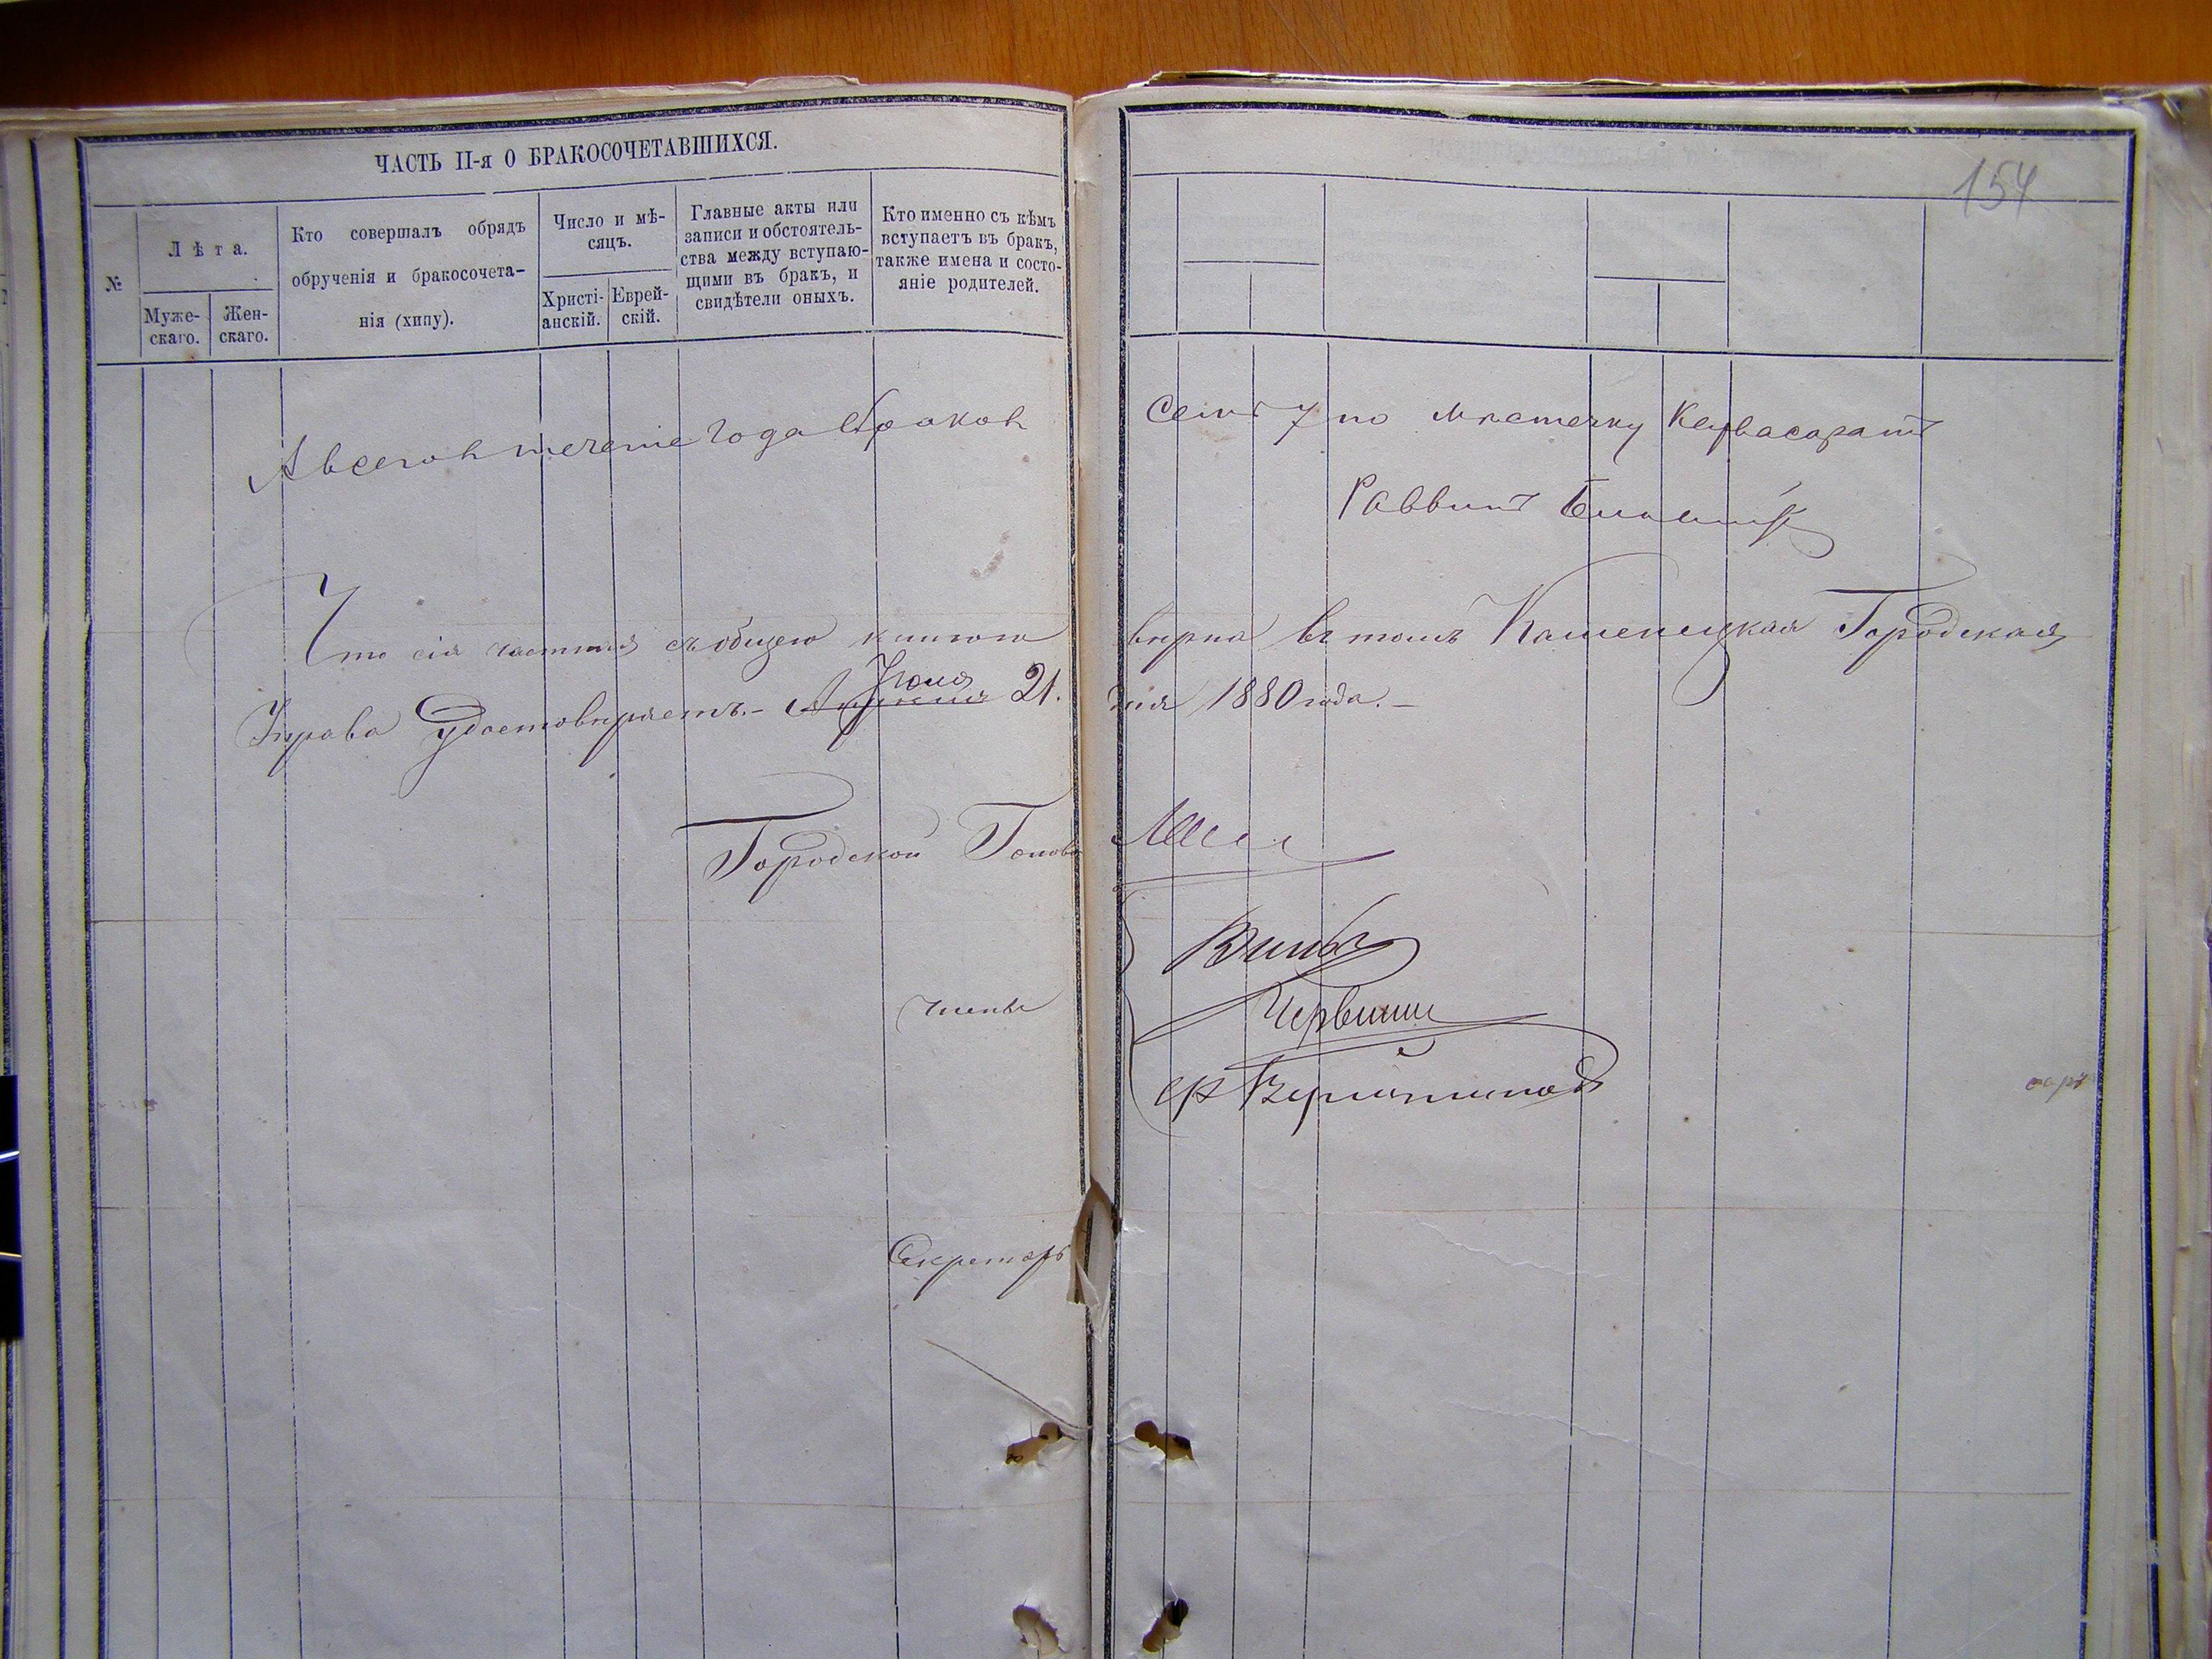 ЧАСТЬ II-я О БРАКОСОЧЕТАВШИХСЯ.
154
№
Лѣта.
Муже-
скаго.
Жен-
скаго.
Кто совершалъ обрядъ
обрученія и бракосочета-
нія (хипу).
Число и мѣ-
сяцъ.
Христі-
анскій.
Еврей-
скій.
Главные акты или
записи и обстоятель-
ства между вступаю-
щими въ бракъ, и
свидѣтели оныхъ.
Кто именно съ кѣмъ
вступаетъ въ бракъ,
также имена и состо-
яніе родителей.
А всего въ теченіе года браковъ семь 7 по мѣстечку
Раввинъ
Что сія частная съ общею книгою вѣрна въ томъ Каменецкая Городская
Іюня
Управа удостовѣряетъ.- 21. дня 1880 года.-
Городской Голова
Члены
Секретарь